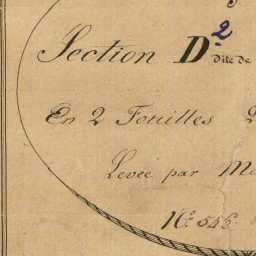 Section D.2 dite de
En 2 Feuilles
Levée par M
N.º 54